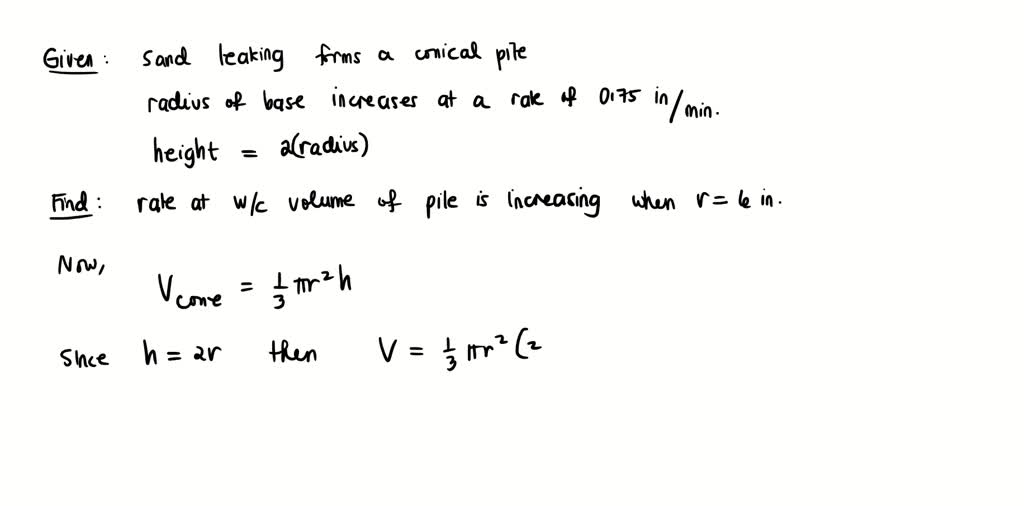 Given: sand leaking forms a conical pile
radius of base increases at a rate of 0.75 in/min.
height = 2(radius)
Find: rate at w/c volume of pile is increasing when r = 6 in.
Now,
V cone = 1/3 πr² h
Since h = 2r then V = 1/3 πr² (2